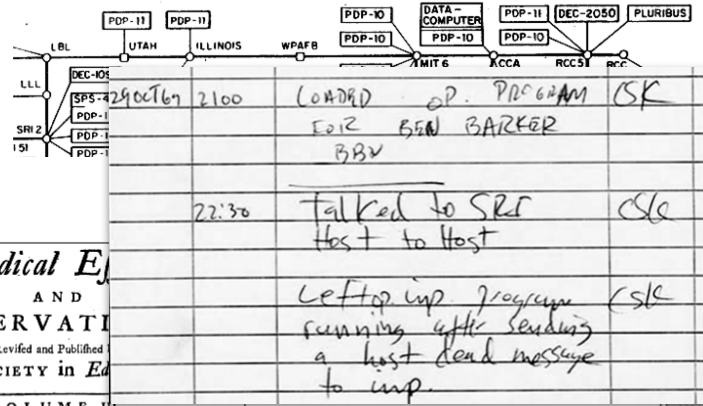 PDP-11
PDP-11
PDP-10
DATA-
COMPUTER
PDP-11
DEC-2050
PLURIBUS
PDP-10
PDP-10
PDP-10
LBL
UTAH
ILLINOIS
WPAFB
MIT 6
CCA
RCC5
RCC
LLL
DEC-10
SPS-4
PDP-1
SRI 2
PDP-1
151
PDP-1
29OCT69 2100 LOADED OP. PROGRAM CSK
FOR BEN BARKER
BBN
22:30 Talked to SRI CSK
Host to Host
Left op. imp. program CSK
running after sending
a host dead message
to imp.
dical Ef
AND
ERVATI
evised and Published
CIETY in Ed